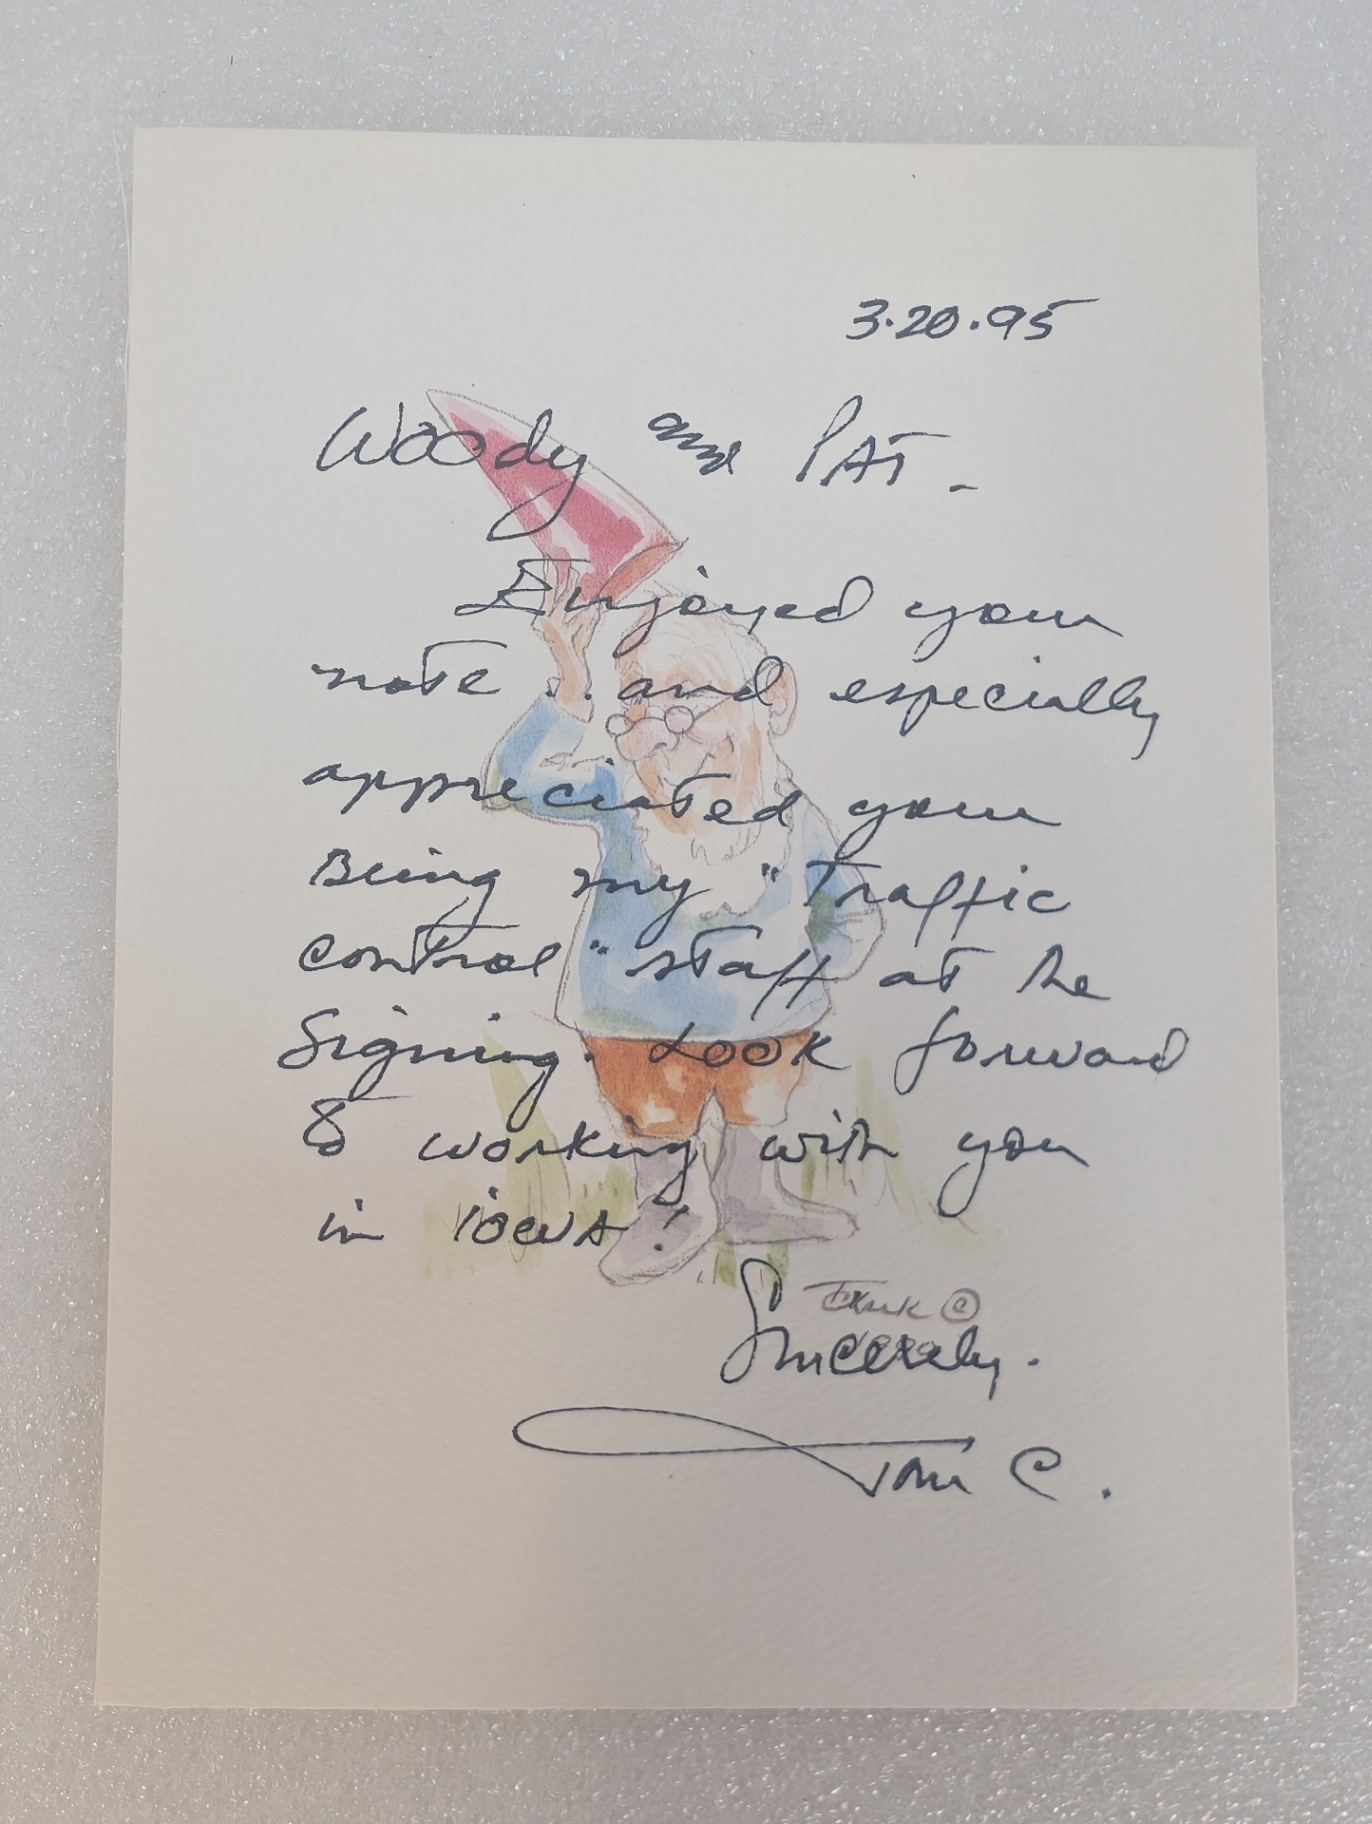 3.20.95
Woody and PAT -
Enjoyed your
note .. and especially
appreciated your
Being my "Traffic
control" staff at the
Signing. Look forward
to working with you
in iowA!
Clark ©
Sincerely.
Tom C.